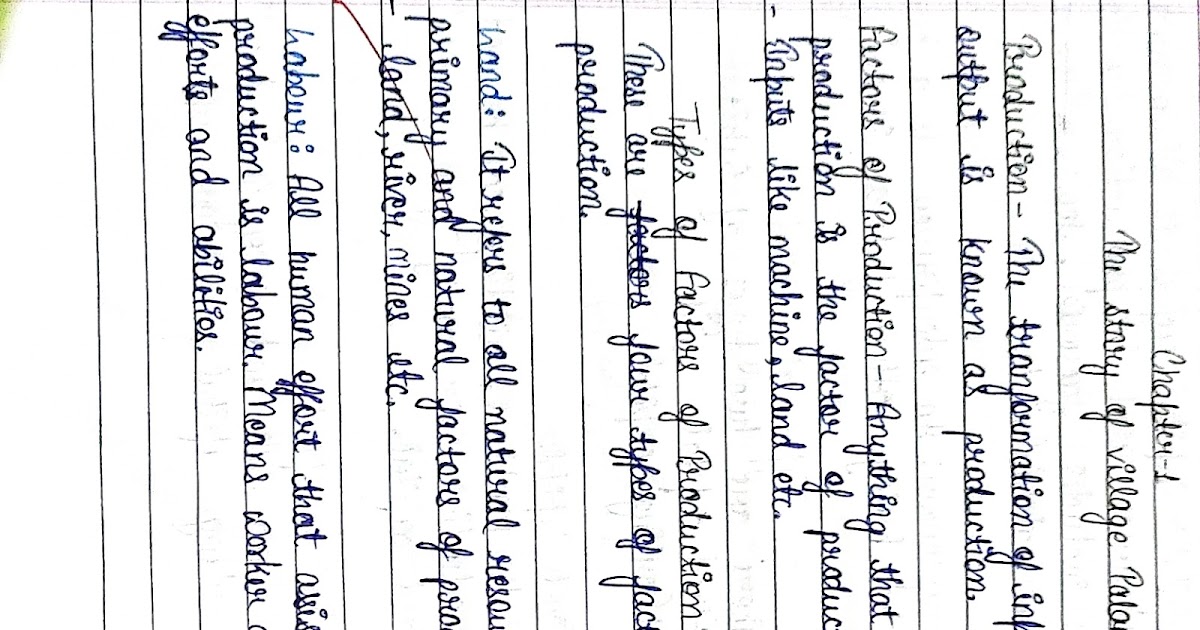 Chapter-1
The story of village Palam
Production- The tranformation of inp
output is known as production.
Factors of Production- Anything that
production is the factor of produc
- Inputs like machine, land etc.
Types of Factors of Production
These are factors four types of fact
production.
Land: It refers to all natural resou
primary and natural factors of pro
- land, river, mines etc.
Labour: All human effort that assis
production is labour. Means worker
efforts and abilities.